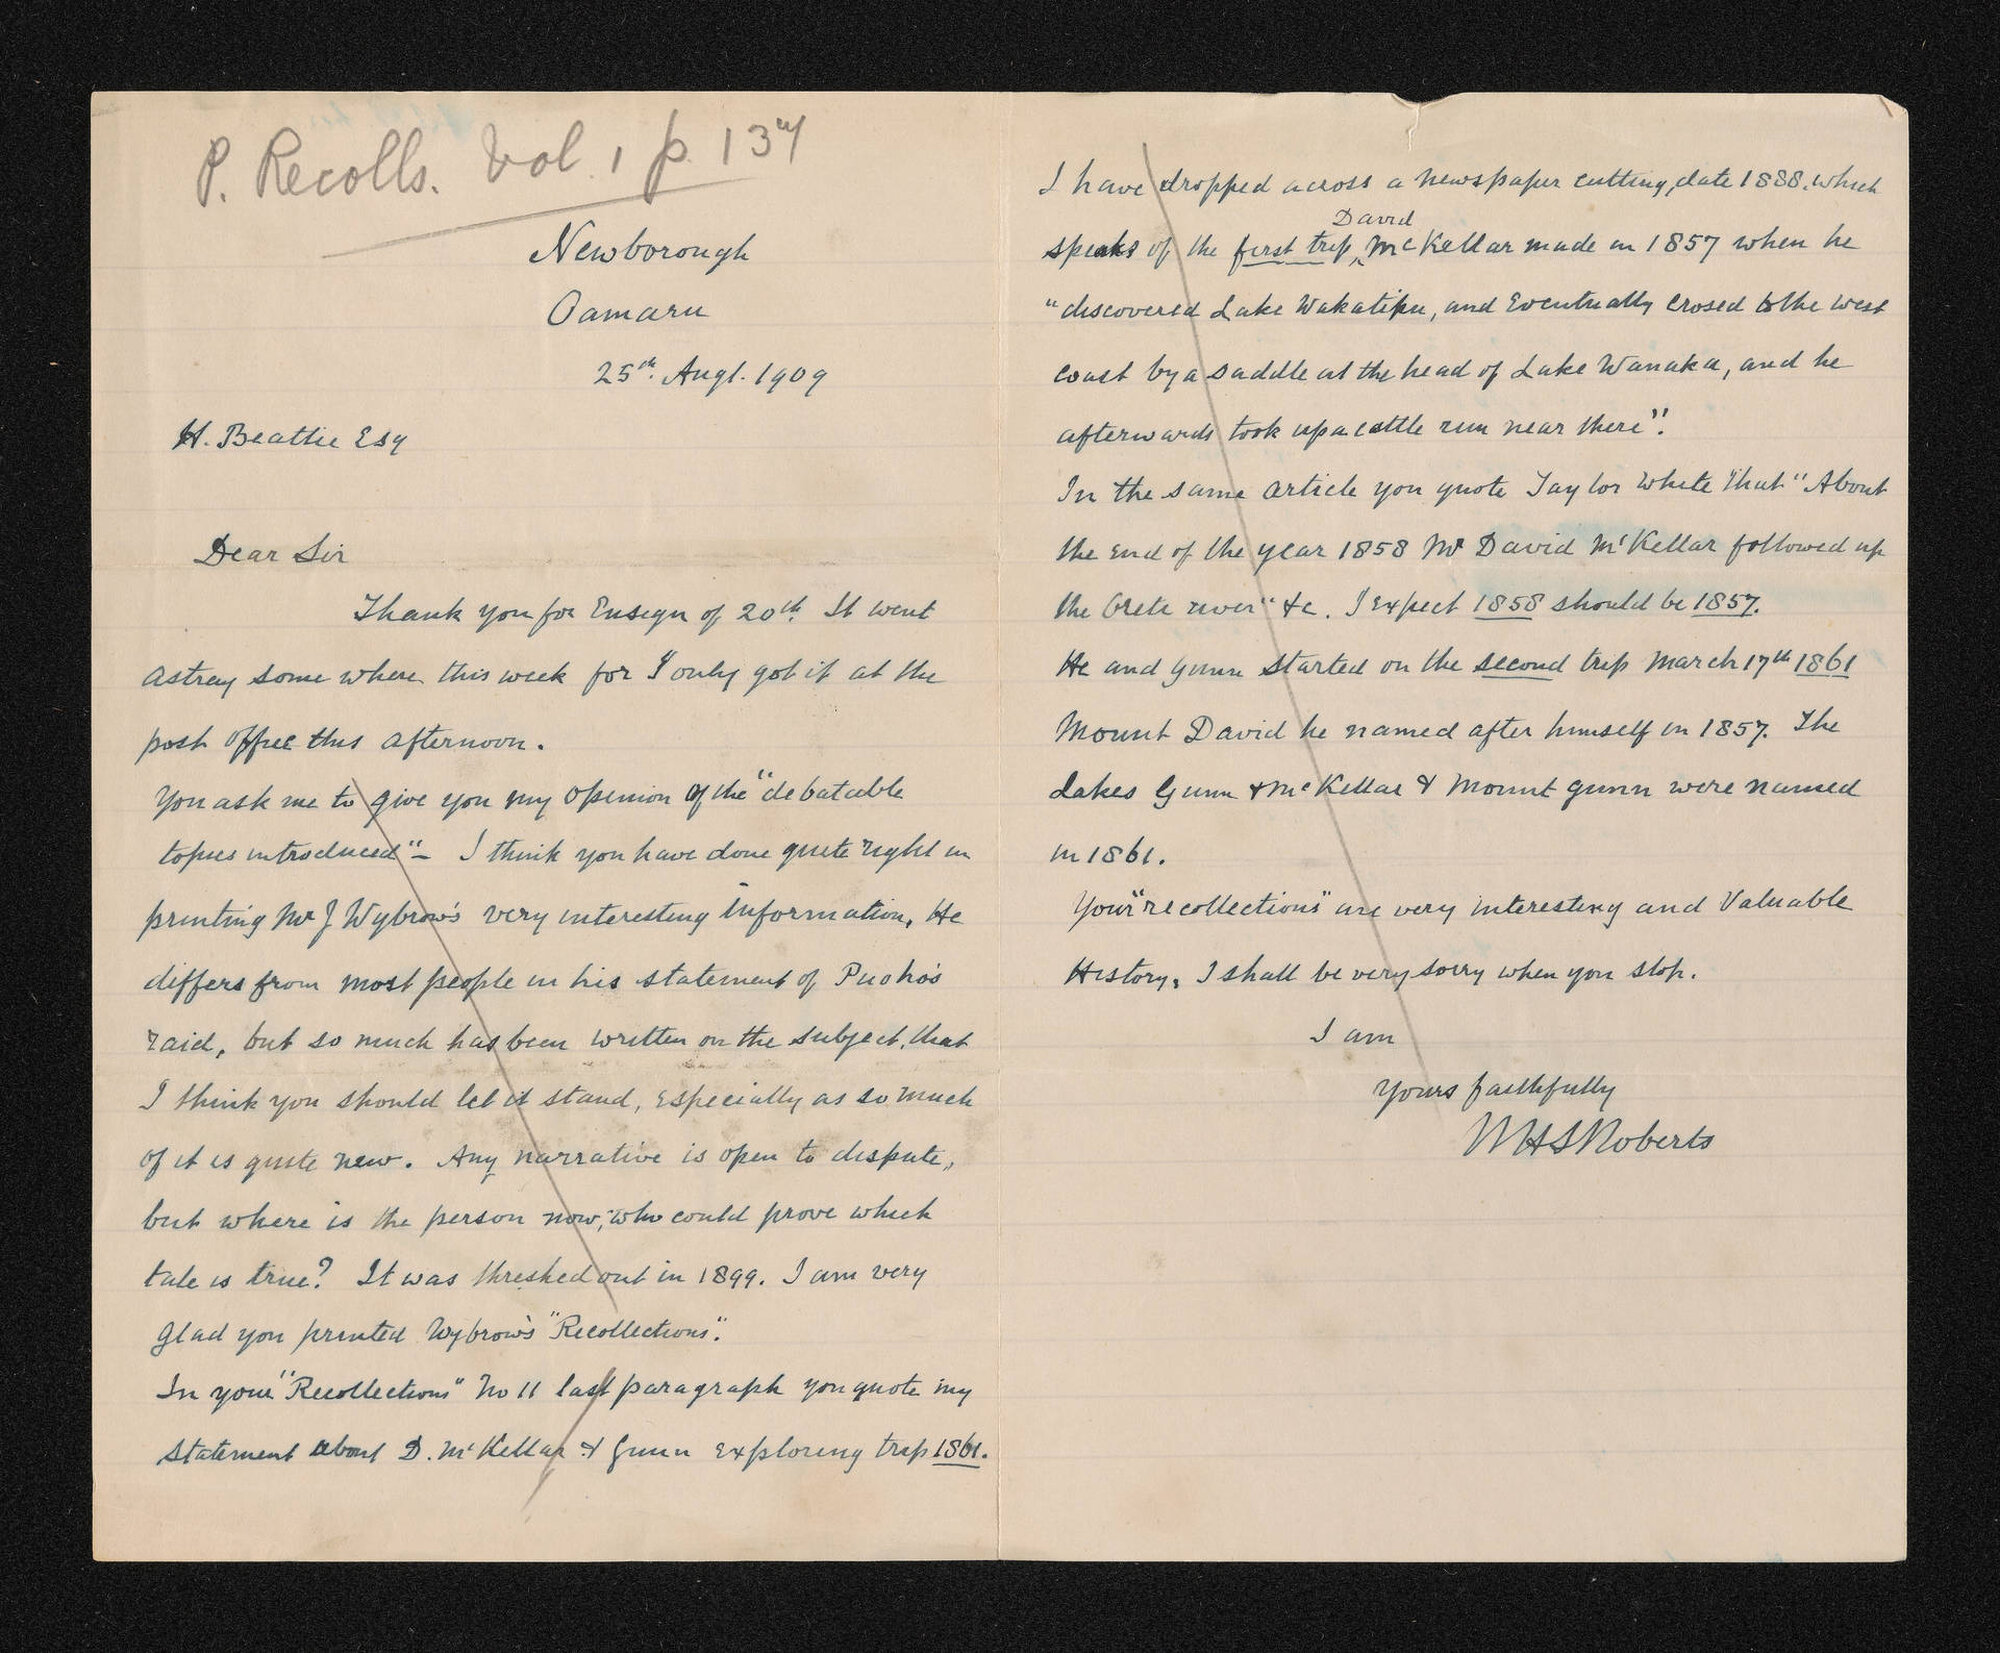 P. Recolls. Vol. 1 p. 137
Newborough
Oamaru
25th. Augt. 1909
H. Beattie Esq
Dear Sir
Thank you for Ensign of 20th. It went
astray some where this week for I only got it at the
post office this afternoon.
You ask me to give you my opinion of the "debatable
topics introduced" – I think you have done quite right in
printing Mr J Wybrow's very interesting information. He
differs from most people in his statement of Puoho's
raid, but so much has been written on the subject, that
I think you should let it stand, especially as so much
of it is quite new. Any narrative is open to dispute,
but where is the person now, who could prove which
tale is true? It was threshed out in 1899. I am very
glad you printed Wybrow's "Recollections".
In your "Recollections" No 11 last paragraph you quote my
statement about D. McKellar & Gunn exploring trip 1861.
I have dropped across a newspaper cutting, date 1888, which
David
speaks of the first trip, McKellar made in 1857 when he
"discovered Lake Wakatipu, and eventually crosed to the west
coast by a saddle at the head of Lake Wanaka, and he
afterwards took up a cattle run near there".
In the same article you quote Taylor White that "About
the end of the year 1858 Mr David McKellar followed up
the Oreti river" &c. I expect 1858 should be 1857.
He and Gunn started on the second trip March 17th 1861
Mount David he named after himself in 1857. The
Lakes Gunn & McKellar & Mount Gunn were named
in 1861.
Your "recollections" are very interesting and valuable
History, I shall be very sorry when you stop.
I am
Yours faithfully
WHSRoberts